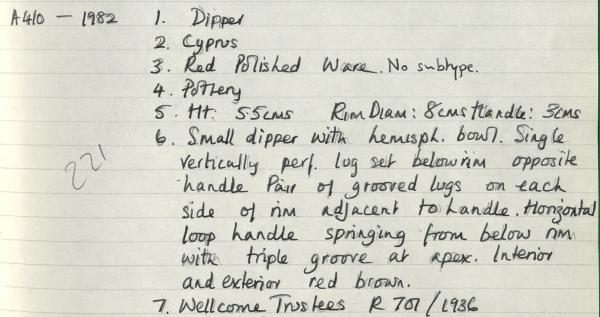 A410 - 1982 1. Dipper
2. Cyprus
3. Red Polished Ware. No subtype.
4. Pottery
5. Ht: 5.5cms Rim Diam: 8cms Handle: 3cms
6. Small dipper with hemisph. bowl. Single
vertically perf. lug set below rim opposite
handle Pair of grooved lugs on each
side of rim adjacent to handle. Horizontal
loop handle springing from below rim
with triple groove at apex. Interior
and exterior red brown.
7. Wellcome Trustees R 701/1936
221